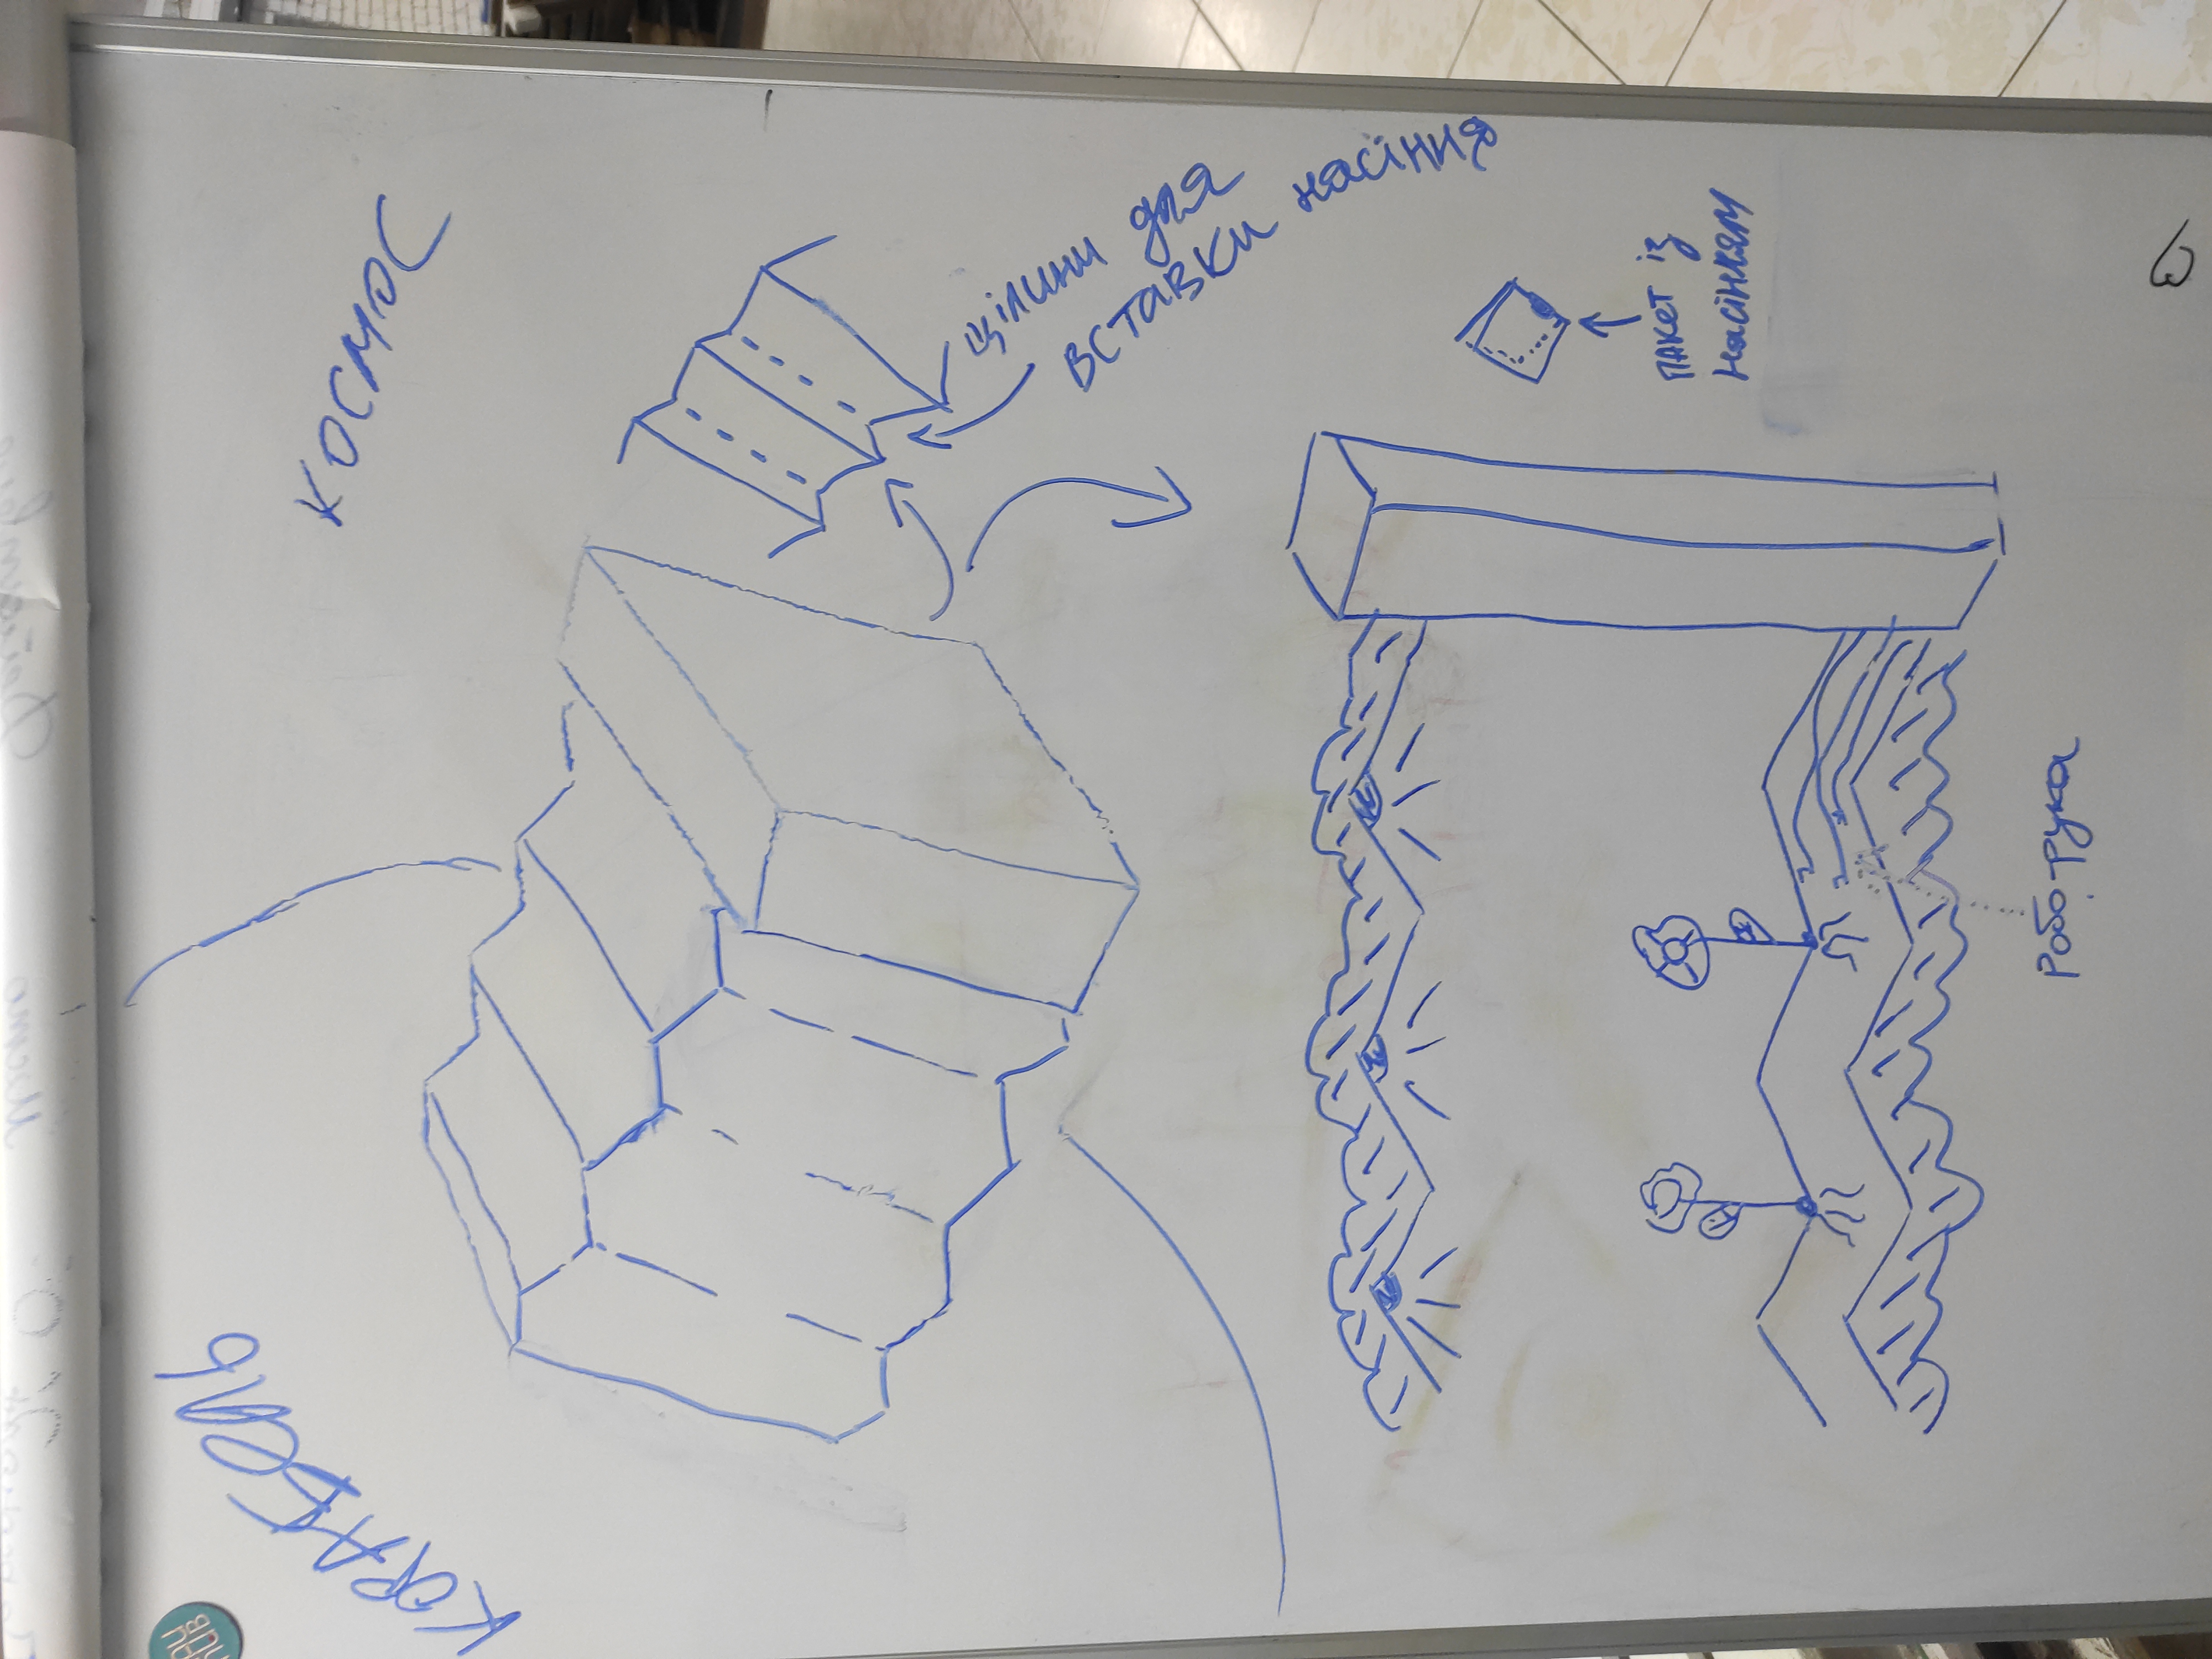 КОРАБЕЛЬ
КОСМОС
щілини для
вставки насіння
пакет із
насінням
Робо-рука